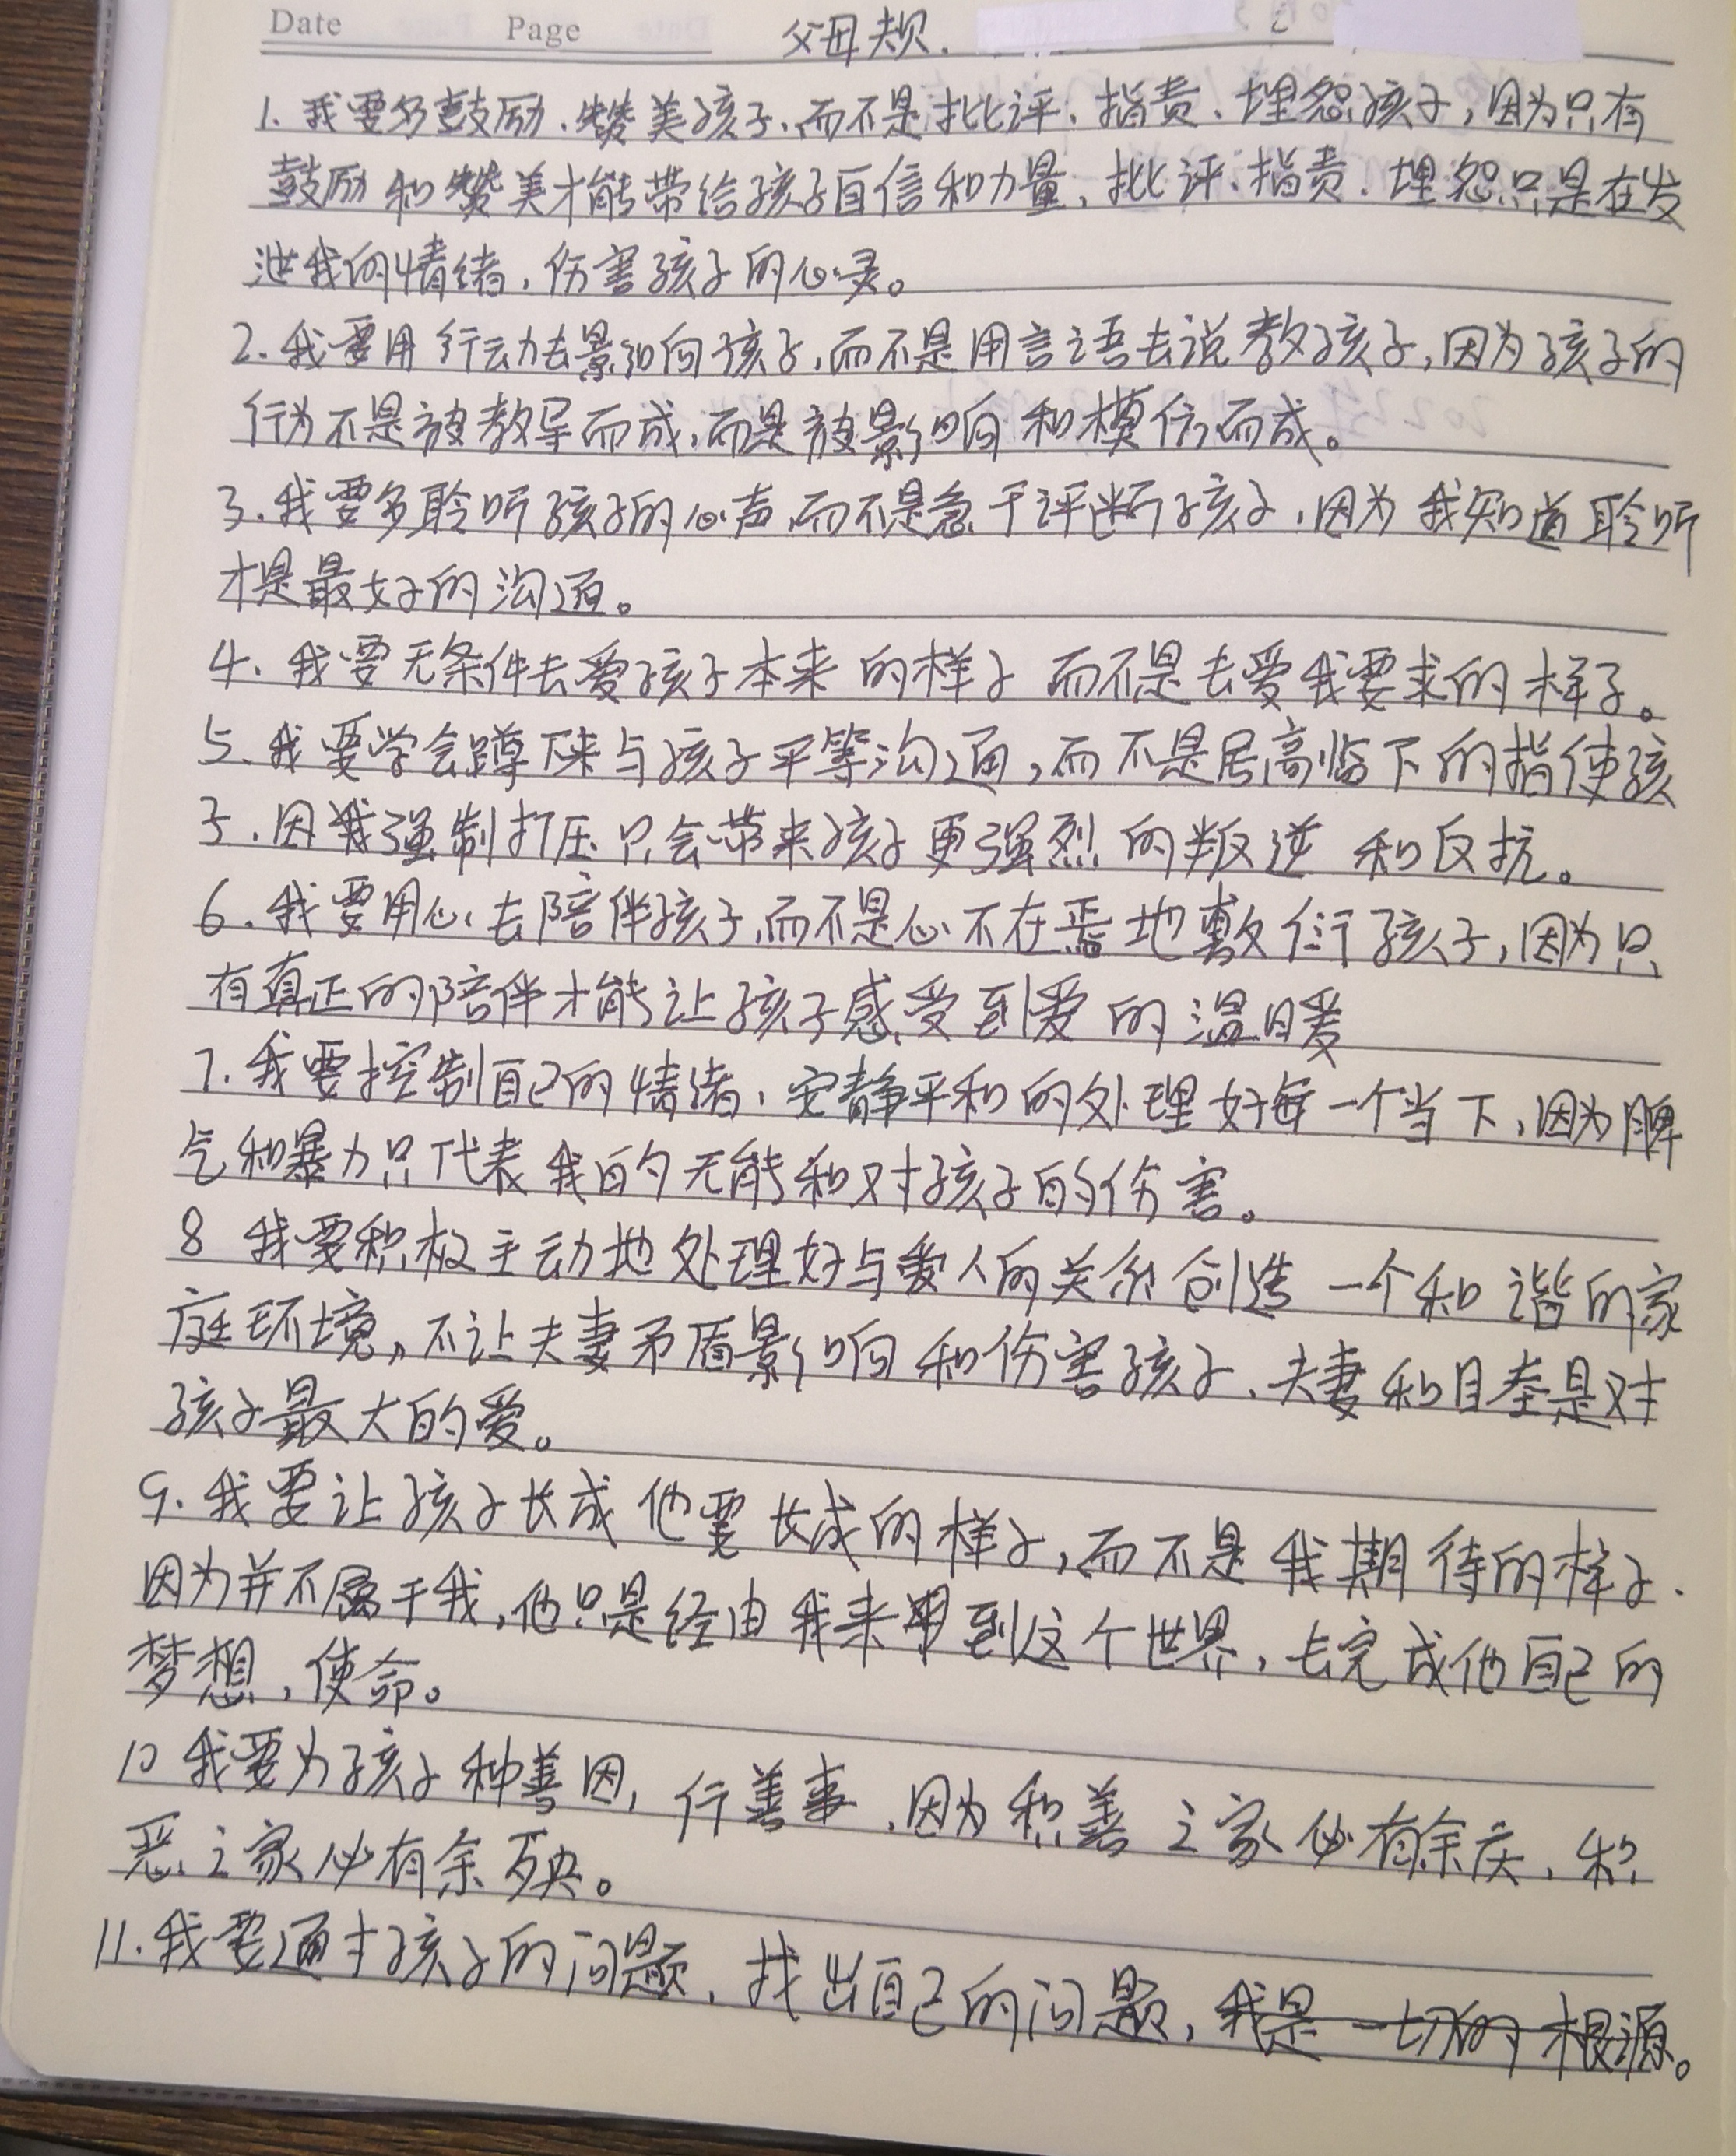 Date Page 父母规.
1. 我要多鼓励、赞美孩子、而不是批评、指责、埋怨孩子，因为只有
鼓励和赞美才能带给孩子自信和力量，批评、指责、埋怨只是在发
泄我的情绪，伤害孩子的心灵。
2. 我要用行动去影响孩子，而不是用言语去说教孩子，因为孩子的
行为不是被教导而成，而是被影响和模仿而成。
3. 我要多聆听孩子的心声，而不是急于评断孩子，因为我知道聆听
才是最好的沟通。
4. 我要无条件去爱孩子本来的样子 而不是去爱我要求的样子。
5. 我要学会蹲下来与孩子平等沟通，而不是居高临下的指使孩
子，因我强制打压只会带来孩子更强烈的叛逆和反抗。
6. 我要用心去陪伴孩子，而不是心不在焉地敷衍孩子，因为只
有真正的陪伴才能让孩子感受到爱的温暖
7. 我要控制自己的情绪，安静平和的处理好每一个当下，因为脾
气和暴力只代表我的无能和对孩子的伤害。
8 我要积极主动地处理好与爱人的关系 创造一个和谐的家
庭环境，不让夫妻矛盾影响和伤害孩子、夫妻和目奉是对
孩子最大的爱。
9. 我要让孩子长成他要长成的样子，而不是我期待的样子.
因为并不属于我，他只是经由我来到这个世界，去完成他自己的
梦想，使命。
10 我要为孩子种善因，行善事，因为积善之家必有余庆，积
恶之家必有余殃。
11. 我要通过孩子的问题，找出自己的问题，我是一切的根源。